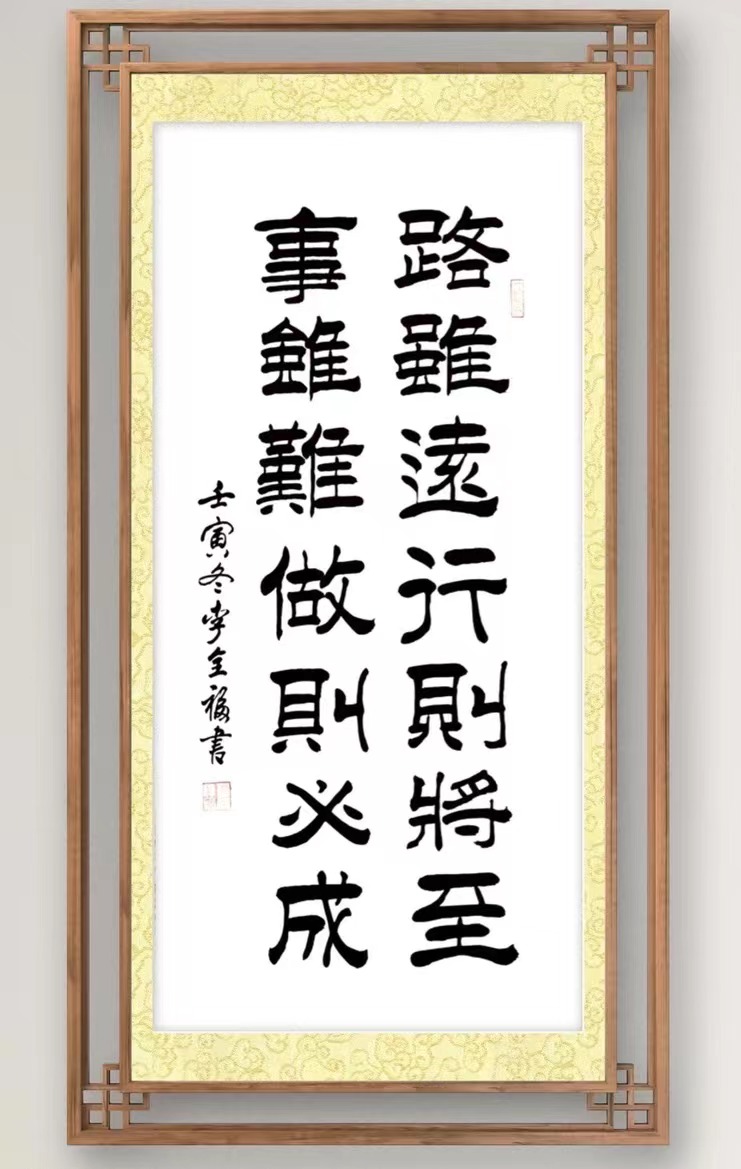 路雖遠行則將至
事雖難做則必成
壬寅冬李全福書